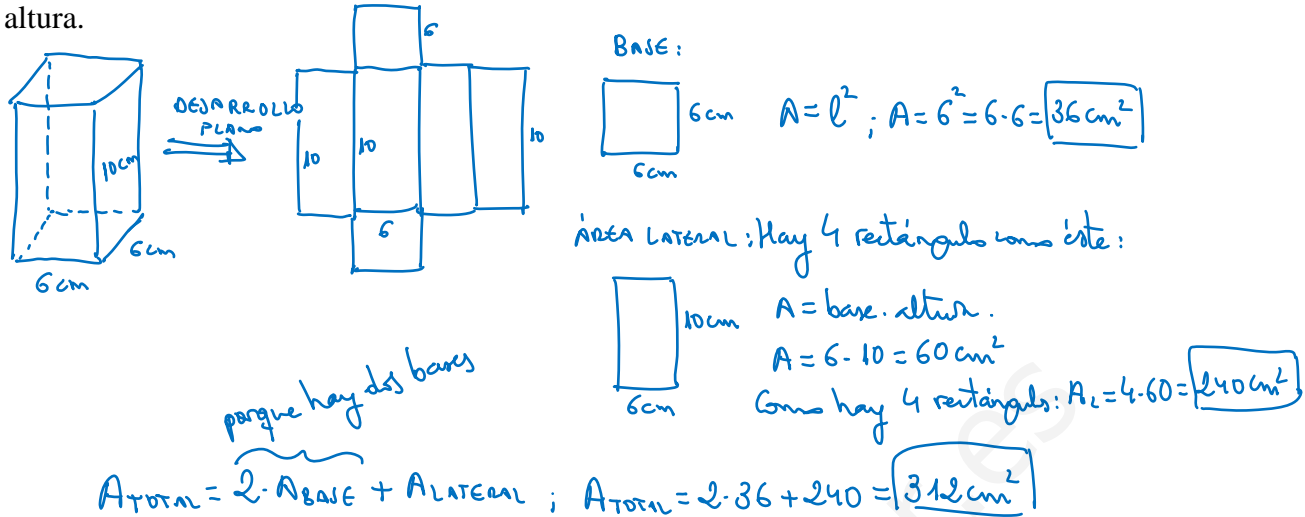 altura.
DESARROLLO
PLANO
10cm
6cm
6cm
6
10
10
10
6
BASE:
6cm
6cm
A = l²; A = 6² = 6·6 = 36 cm²
ÁREA LATERAL: Hay 4 rectángulos como éste:
10cm
6cm
A = base · altura.
A = 6·10 = 60 cm²
Como hay 4 rectángulos: A_L = 4·60 = 240 cm²
porque hay dos bases
A_TOTAL = 2·A_BASE + A_LATERAL; A_TOTAL = 2·36 + 240 = 312 cm²